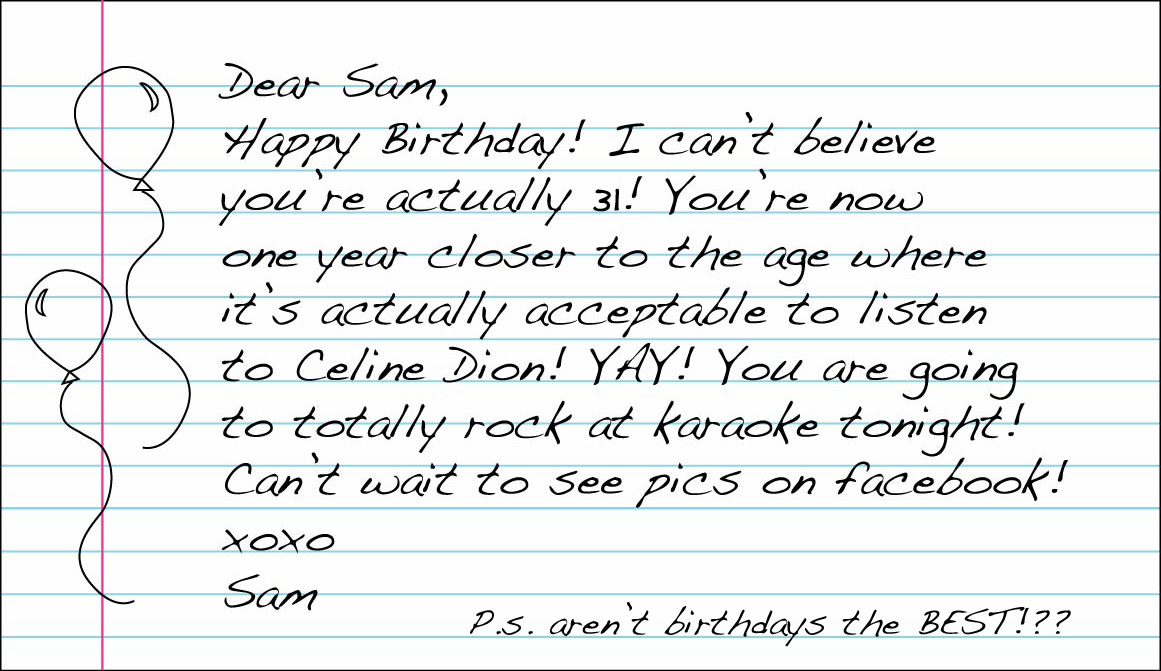 Dear Sam,
Happy Birthday! I can't believe
you're actually 31! You're now
one year closer to the age where
it's actually acceptable to listen
to Celine Dion! YAY! You are going
to totally rock at karaoke tonight!
Can't wait to see pics on facebook!
xoxo
Sam
P.s. aren't birthdays the BEST!??